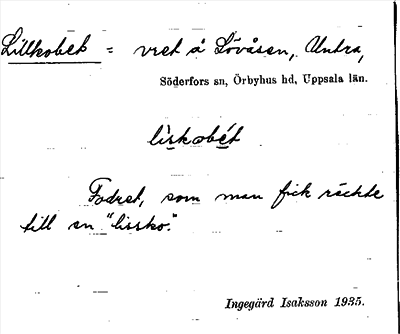 Lillkobet = vret å Lövåsen, Untra,
Söderfors sn, Örbyhus hd, Uppsala län.
liskobét
Fodret, som man fick räckte
till en "lissko".
Ingegärd Isaksson 1935.